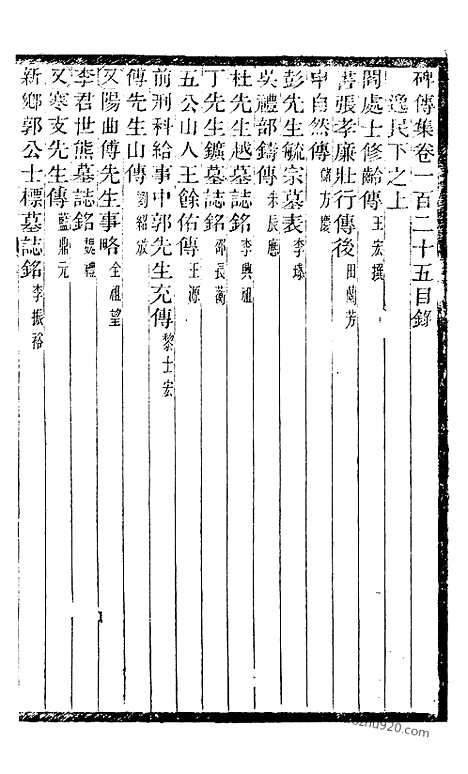 碑傳集卷一百二十五目錄
逸民下之上
閻處士修齡傳 王宏撰
書張孝廉壯行傳後 田蘭芳
申自然傳 儲方慶
彭先生毓宗墓表 李琇
吳禮部鑄傳 朱辰應
杜先生越墓誌銘 李興祖
丁先生鑛墓誌銘 邵長蘅
五公山人王餘佑傳 王源
前刑科給事中郭先生充傳 黎士宏
傅先生山傳 劉紹攽
又陽曲傅先生事略 全祖望
李君世熊墓誌銘 魏禮
又寒支先生傳 藍鼎元
新鄉郭公士標墓誌銘 李振裕